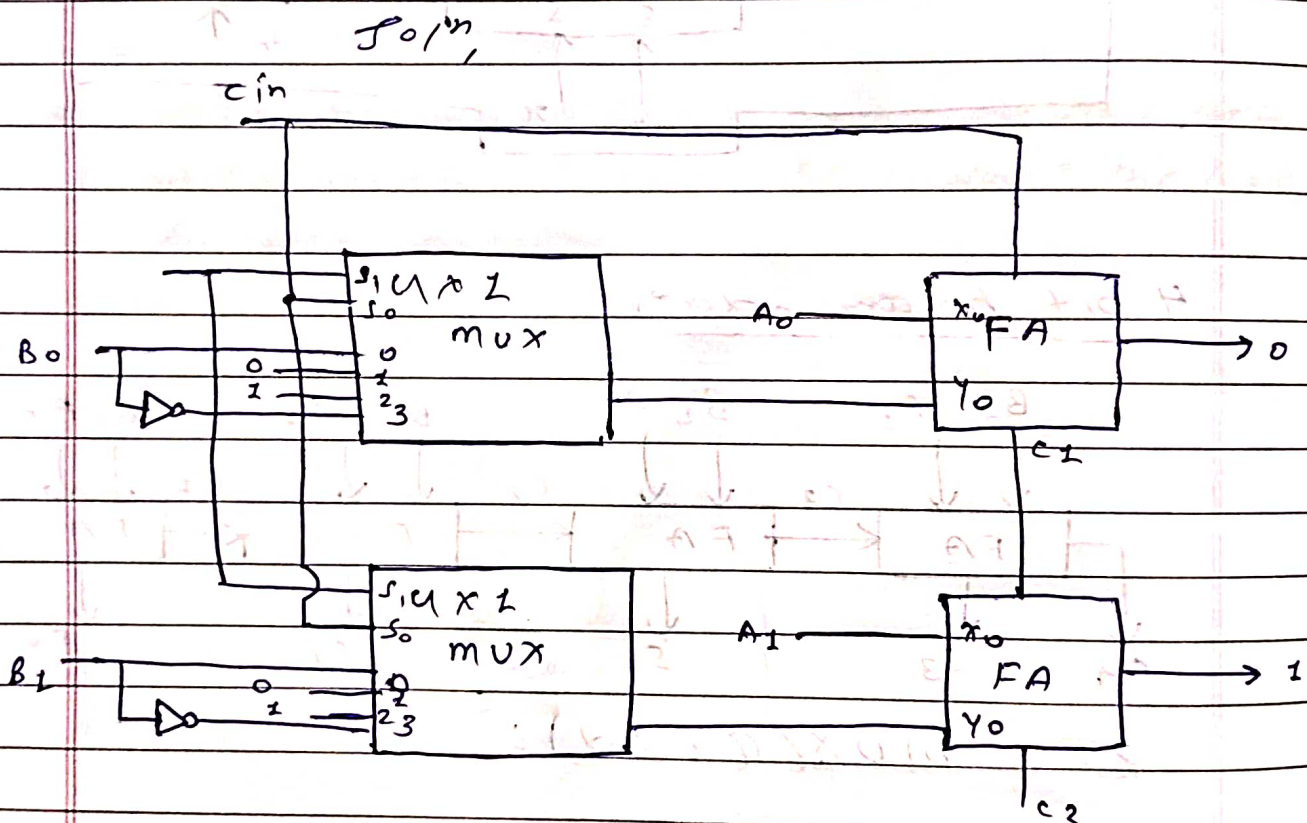 Soln,
Cin
S1 4 x 1
S0
MUX
B0
0
0
1
1
2
3
A0
X0
FA
Y0
0
C1
S1 4 x 1
S0
MUX
B1
0
0
1
1
2
3
A1
X0
FA
Y0
1
C2